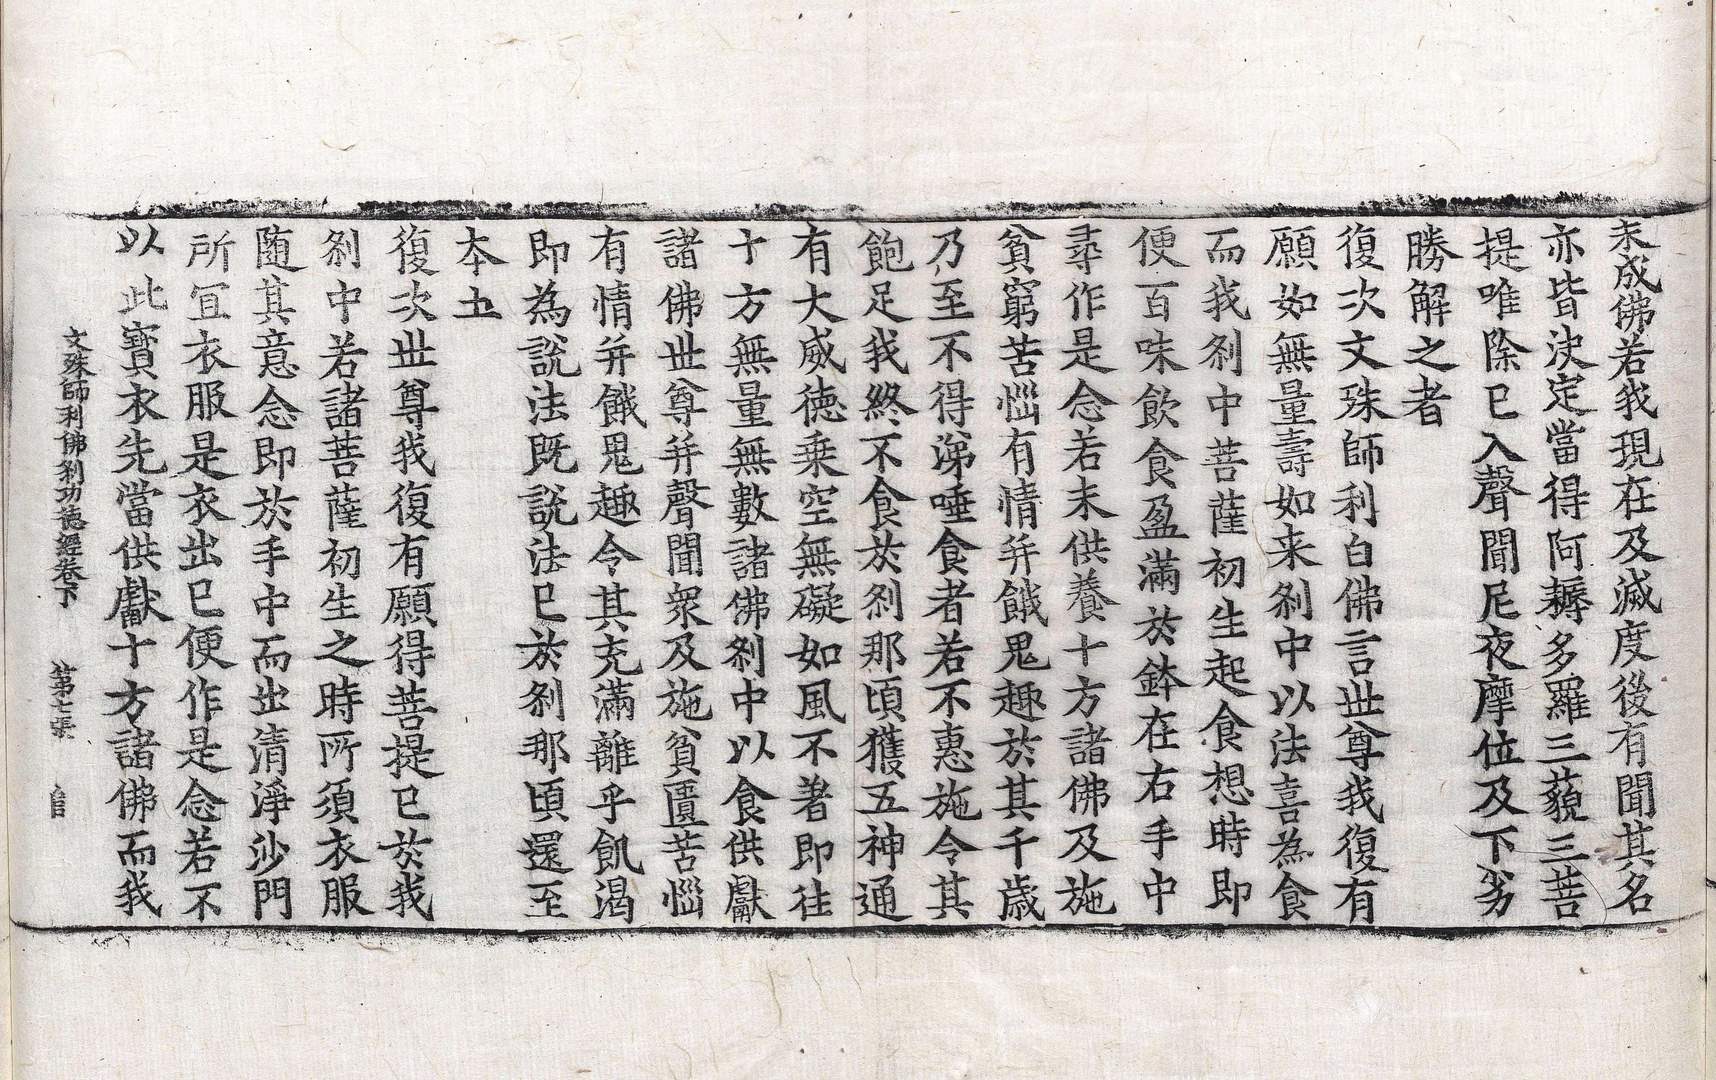 未成佛若我現在及滅度後有聞其名
亦皆決定當得阿耨多羅三藐三菩
提唯除已入聲聞尼夜摩位及下劣
勝解之者
復次文殊師利白佛言世尊我復有
願如無量壽如来刹中以法喜為食
而我刹中菩薩初生起食想時即
便百味飲食盈滿於鉢在右手中
尋作是念若未供養十方諸佛及施
貧窮苦惱有情并餓鬼趣於其千歳
乃至不得涕唾食者若不惠施令其
飽足我終不食於刹那頃獲五神通
有大威徳乗空無礙如風不著即往
十方無量無數諸佛刹中以食供獻
諸佛世尊并聲聞衆及施貧匱苦惱
有情并餓鬼趣令其充滿離乎飢渴
即為説法既説法已於刹那頃還至
本土
復次世尊我復有願得菩提已於我
刹中若諸菩薩初生之時所須衣服
随其意念即於手中而出清淨沙門
所宜衣服是衣出已便作是念若不
以此寳衣先當供獻十方諸佛而我
文殊師利佛刹功徳經卷下 第七張 官